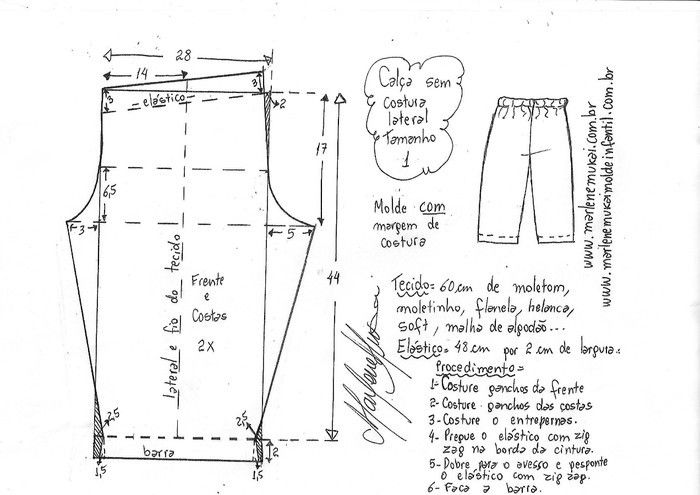 28
14
3
3
elástico
2
17
6,5
3
5
44
Frente
e
Costas
2X
lateral e fio do tecido
2,5
2,5
barra
2
1,5
1,5
Calça sem
costura
lateral
Tamanho
1
Molde com
margem de
costura
www.marlenemukai.com.br
www.marlenemukaimoldeinfantil.com.br
Tecido= 60cm de moletom,
moletinho, flanela, helanca,
soft, malha de algodão...
Elástico= 48cm por 2cm de largura.
Procedimento=
1- Costure ganchos da frente
2- Costure ganchos das costas
3- Costure o entrepernas.
4- Pregue o elástico com zig
zag na borda da cintura.
5- Dobre para o avesso e pesponte
o elástico com zig zag.
6- Faça a barra.